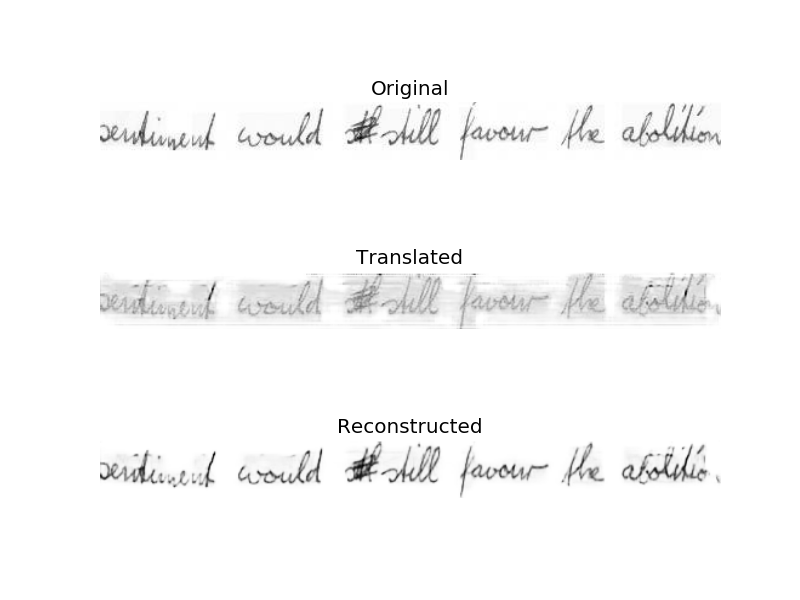 Original
sentiment would still favour the abolition
Translated
sentiment would still favour the abolition
Reconstructed
sentiment would still favour the abolitio